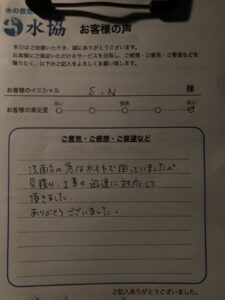 水の救急
水協 お客様の声
本日はご依頼いただき、誠にありがとうございます。
お客様にご満足いただけるサービスを目指し、ご感想・ご意見・ご要望などを
賜りたく、以下のご記入をよろしくお願い致します。
お客様のイニシャル S.N 様
お客様の満足度 低い 普通 高い
ご意見・ご感想・ご要望など
洗面台の急な水もれで困っていましたが、
見積り、工事も迅速に対応して
頂きました。
ありがとうございました。
ご記入ありがとうございました。